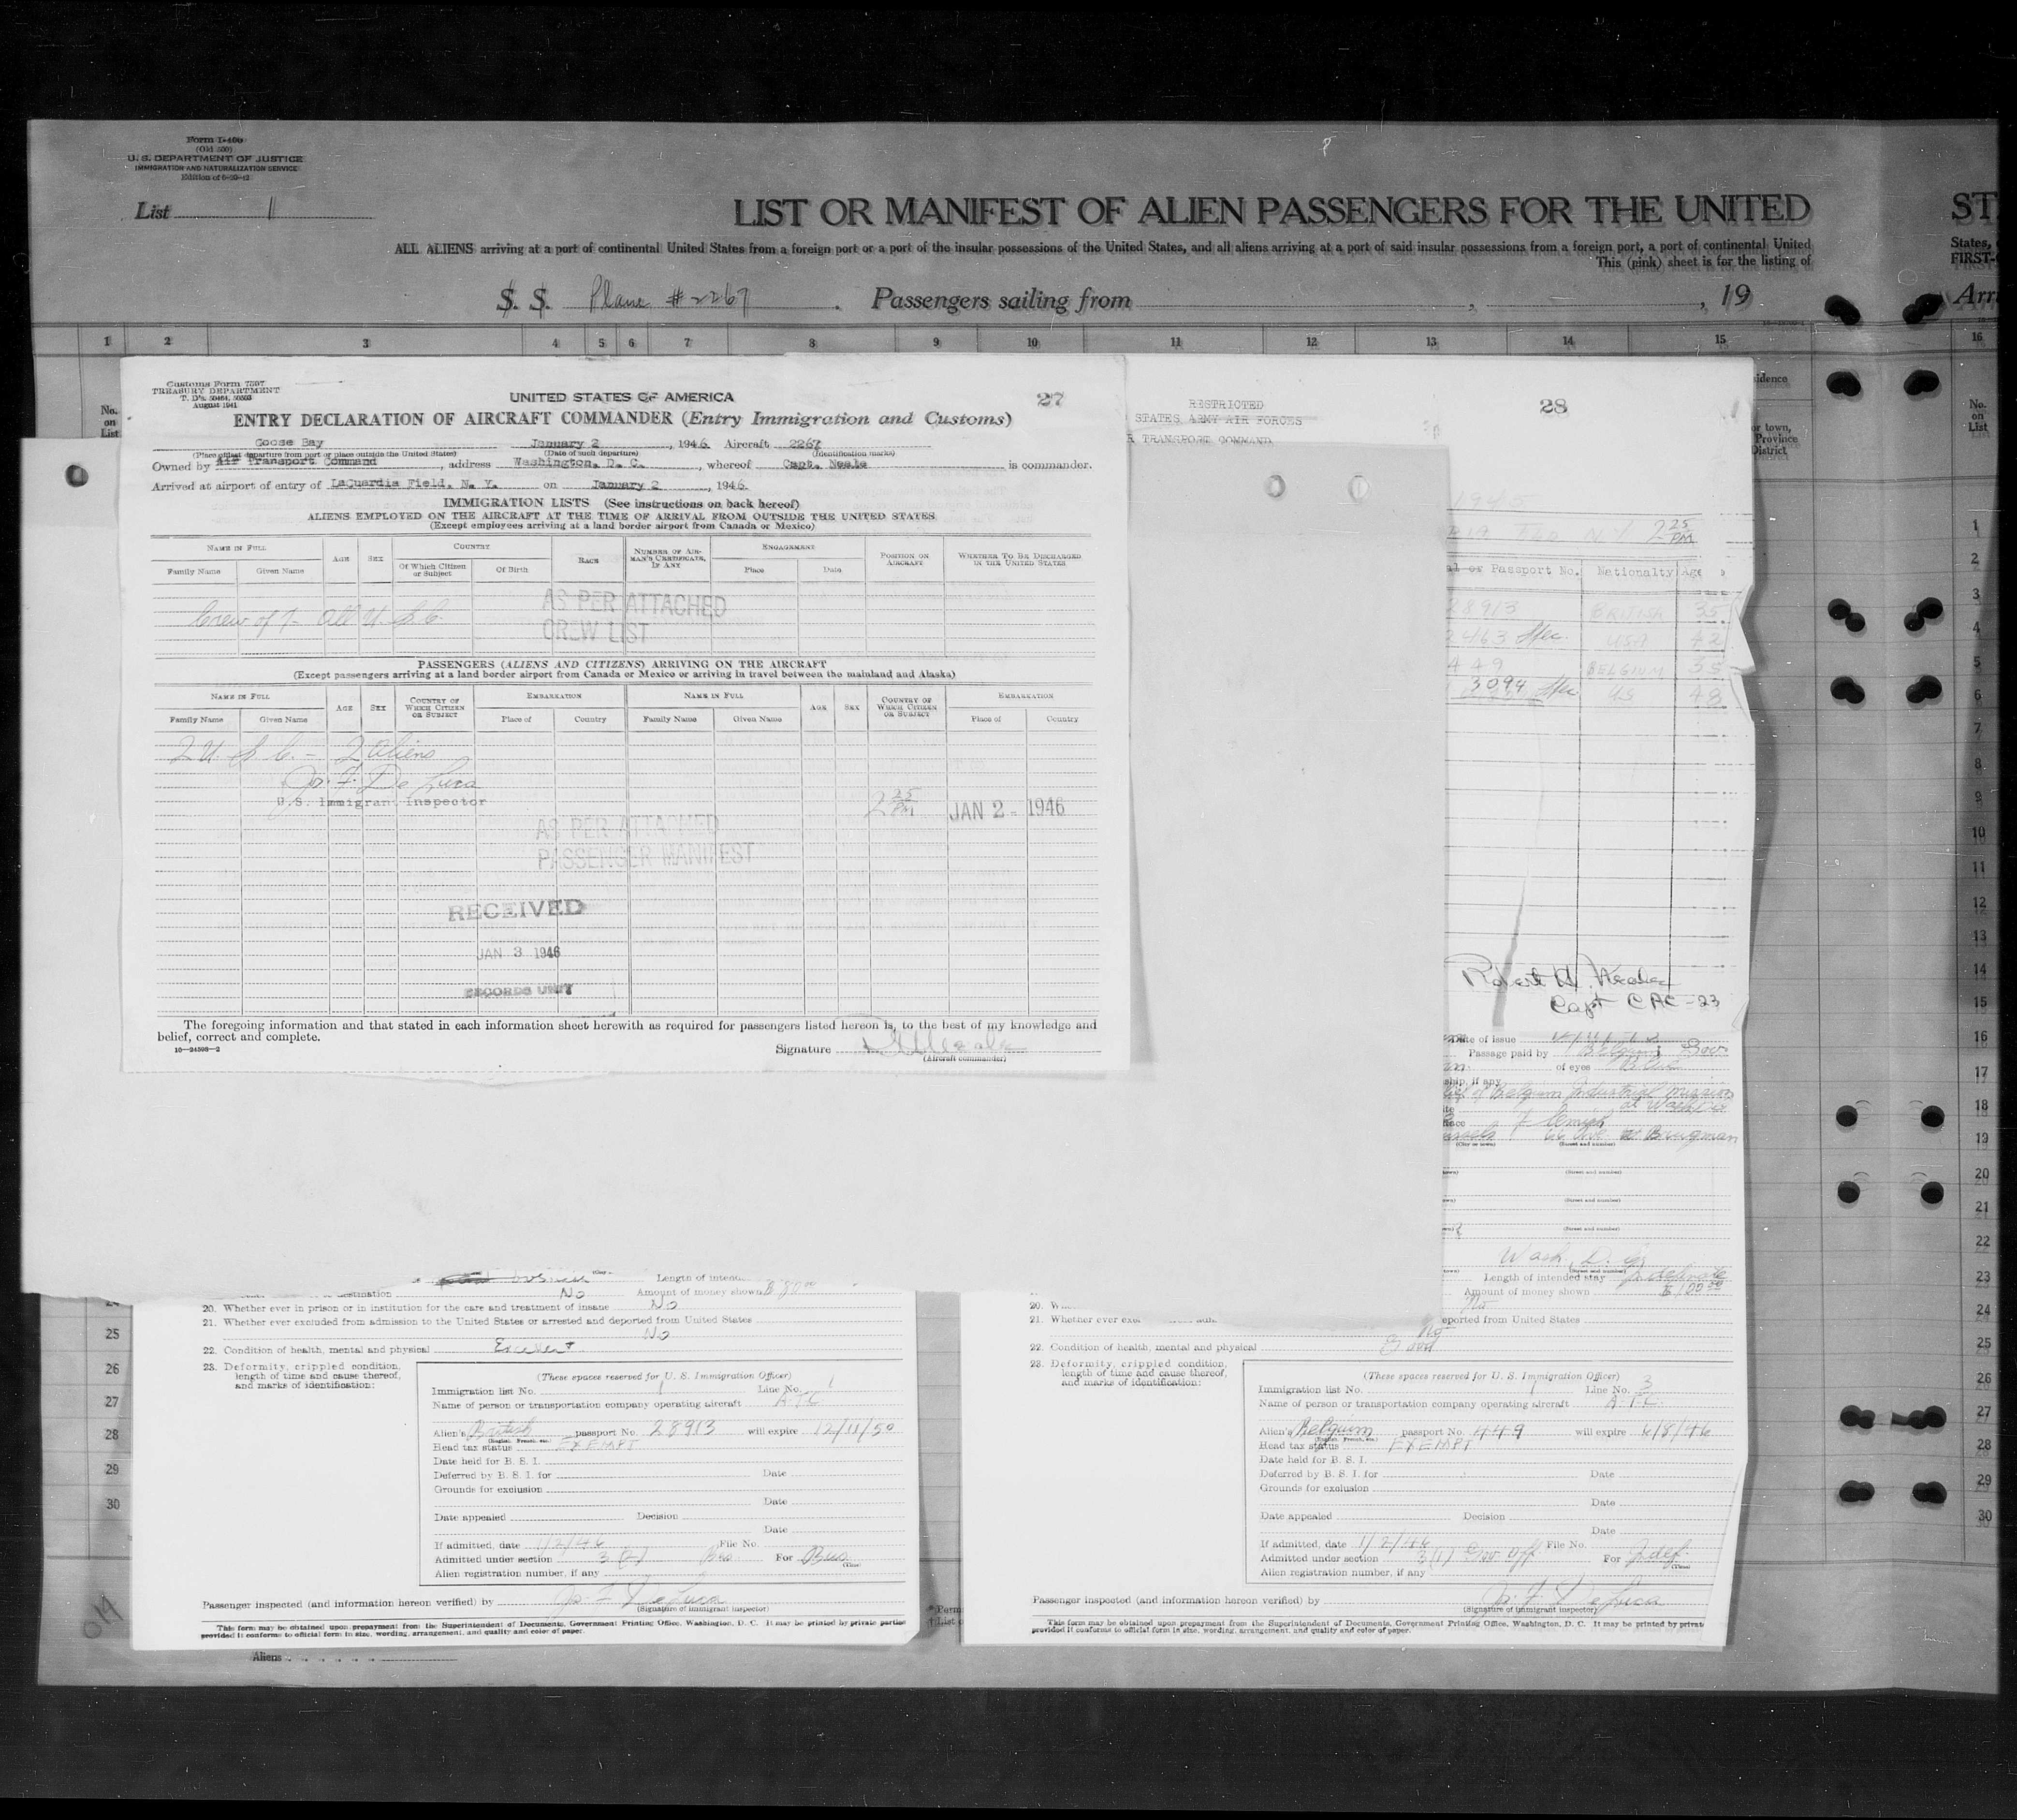 Form I-466
(Old 500)
U. S. DEPARTMENT OF JUSTICE
IMMIGRATION AND NATURALIZATION SERVICE
Edition of 6-30-42
List 11
LIST OR MANIFEST OF ALIEN PASSENGERS FOR THE UNITED
ST
ALL ALIENS arriving at a port of continental United States from a foreign port or a port of the insular possessions of the United States, and all aliens arriving at a port of said insular possessions from a foreign port, a port of continental United
States,
This (pink) sheet is for the listing of
FIRST-
S. S. Plane #2267. Passengers sailing from , , 19
Arri
1 2 3 4 5 6 7 8 9 10 11 12 13 14 15 16
No.
on
List
Customs Form 7507
TREASURY DEPARTMENT
T. D's. 50464, 50503
August 1941
UNITED STATES OF AMERICA
27
ENTRY DECLARATION OF AIRCRAFT COMMANDER (Entry Immigration and Customs)
Goose Bay January 2, 1946 Aircraft 2267
(Place of last departure from port or place outside the United States) (Date of such departure) (Identification marks)
Owned by Air Transport Command, address Washington, D. C., whereof Capt. Neale is commander.
Arrived at airport of entry of LaGuardia Field, N. Y. on January 2, 1946.
IMMIGRATION LISTS (See instructions on back hereof)
ALIENS EMPLOYED ON THE AIRCRAFT AT THE TIME OF ARRIVAL FROM OUTSIDE THE UNITED STATES
(Except employees arriving at a land border airport from Canada or Mexico)
NAME IN FULL AGE SEX COUNTRY RACE NUMBER OF AIRMAN'S CERTIFICATE, IF ANY ENGAGEMENT POSITION ON AIRCRAFT WHETHER TO BE DISCHARGED IN THE UNITED STATES
Family Name Given Name Of Which Citizen or Subject Of Birth Place Date
Crew of 7- All U. S. C.
AS PER ATTACHED
CREW LIST
PASSENGERS (ALIENS AND CITIZENS) ARRIVING ON THE AIRCRAFT
(Except passengers arriving at a land border airport from Canada or Mexico or arriving in travel between the mainland and Alaska)
NAME IN FULL AGE SEX COUNTRY OF WHICH CITIZEN OR SUBJECT EMBARKATION NAME IN FULL AGE SEX COUNTRY OF WHICH CITIZEN OR SUBJECT EMBARKATION
Family Name Given Name Place of Country Family Name Given Name Place of Country
2 U. S. C. - 2 Aliens
Jo. F. De Luca
U.S. Immigrant Inspector
2 25 PM JAN 2 - 1946
AS PER ATTACHED
PASSENGER MANIFEST
RECEIVED
JAN 3 1946
RECORDS UNIT
The foregoing information and that stated in each information sheet herewith as required for passengers listed hereon is, to the best of my knowledge and
belief, correct and complete.
16-24598-2
Signature
(Aircraft commander)
RESTRICTED
28
STATES ARMY AIR FORCES
R TRANSPORT COMMAND
1945
2 25 PM
Passport No. Nationality Age
28913 BRITISH 35
2463 USA 42
449 BELGIUM 35
3094 US 48
Capt CAC-23
Date of issue
Passage paid by Belgium Gov
of eyes
of Belgium Industrial Mission
at Wash DC
Flemish
Brugman
(City or town) (Street and number)
(Street and number)
(Street and number)
(Street and number)
Wash, D. C.
(Street and number)
Length of intended stay Indefinite
Amount of money shown
Length of inten
destination No Amount of money shown
20. Whether ever in prison or in institution for the care and treatment of insane No
21. Whether ever excluded from admission to the United States or arrested and deported from United States
No
22. Condition of health, mental and physical Excellent
23. Deformity, crippled condition,
length of time and cause thereof,
and marks of identification:
(These spaces reserved for U. S. Immigration Officer)
Immigration list No. 1 Line No. 1
Name of person or transportation company operating aircraft ATC
Alien's British passport No. 28913 will expire 12/11/50
(English, French, etc.)
Head tax status EXEMPT
Date held for B. S. I.
Deferred by B. S. I. for Date
Grounds for exclusion
Date
Date appealed Decision
Date
If admitted, date 1/2/46 File No.
Admitted under section 3 (2) Bus For Bus
(Time)
Alien registration number, if any
Passenger inspected (and information hereon verified) by Jo. F. De Luca
(Signature of immigrant inspector)
This form may be obtained upon prepayment from the Superintendent of Documents, Government Printing Office, Washington, D. C. It may be printed by private parties
provided it conforms to official form in size, wording, arrangement, and quality and color of paper.
Aliens
20. W
21. Whether ever exc eported from United States
No
22. Condition of health, mental and physical Good
23. Deformity, crippled condition,
length of time and cause thereof,
and marks of identification:
(These spaces reserved for U. S. Immigration Officer)
Immigration list No. 1 Line No. 3
Name of person or transportation company operating aircraft A.T.C.
Alien's Belgium passport No. 449 will expire 6/8/46
(English, French, etc.)
Head tax status EXEMPT
Date held for B. S. I.
Deferred by B. S. I. for Date
Grounds for exclusion
Date
Date appealed Decision
Date
If admitted, date 1/2/46 File No.
Admitted under section 3 (1) Gov Off For Indef.
(Time)
Alien registration number, if any
Passenger inspected (and information hereon verified) by Jo. F. De Luca
(Signature of immigrant inspector)
This form may be obtained upon prepayment from the Superintendent of Documents, Government Printing Office, Washington, D. C. It may be printed by private
provided it conforms to official form in size, wording, arrangement, and quality and color of paper.